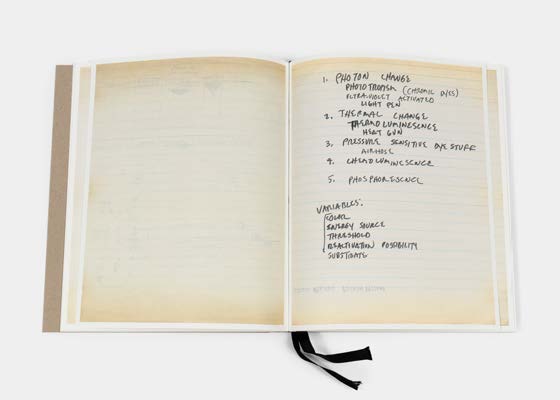 1. PHOTON CHANGE
PHOTOTROPISM (CHROMIC DYES)
ULTRA-VIOLET ACTIVATED
LIGHT PEN
2. THERMAL CHANGE
THERMOLUMINESCENCE
HEAT GUN
3. PRESSURE SENSITIVE DYE STUFF
AIRHOSE
4. CHEMOLUMINESCENCE
5. PHOSPHORESENCE
VARIABLES:
COLOR
ENERGY SOURCE
THRESHOLD
REACTIVATION POSSIBILITY
SUBSTRATE